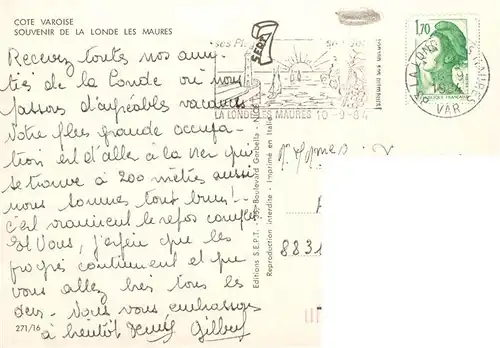 COTE VAROISE
SOUVENIR DE LA LONDE LES MAURES
Recevez toutes nos ami-
tiés de la Londe où nous
passons d'agréables vacances
Notre plus grande occupa-
tion est d'aller à la mer qui
se trouve à 200 mètres aussi
nous sommes tout bruns!..
c'est vraiment le repos complet
Et Vous, j'espère que les
progrès continuent et que
vous allez très tous les
deux. Nous vous embrassons
à bientôt Gilbert
271/16
Editions S.E.P.T. - 35, Boulevard Gorbella - NICE
Reproduction interdite - Imprimé en Italie
SEPT
LA LONDE LES MAURES 10-9-84
1,70
LA LONDE LES MAURES
1984
VAR
8831